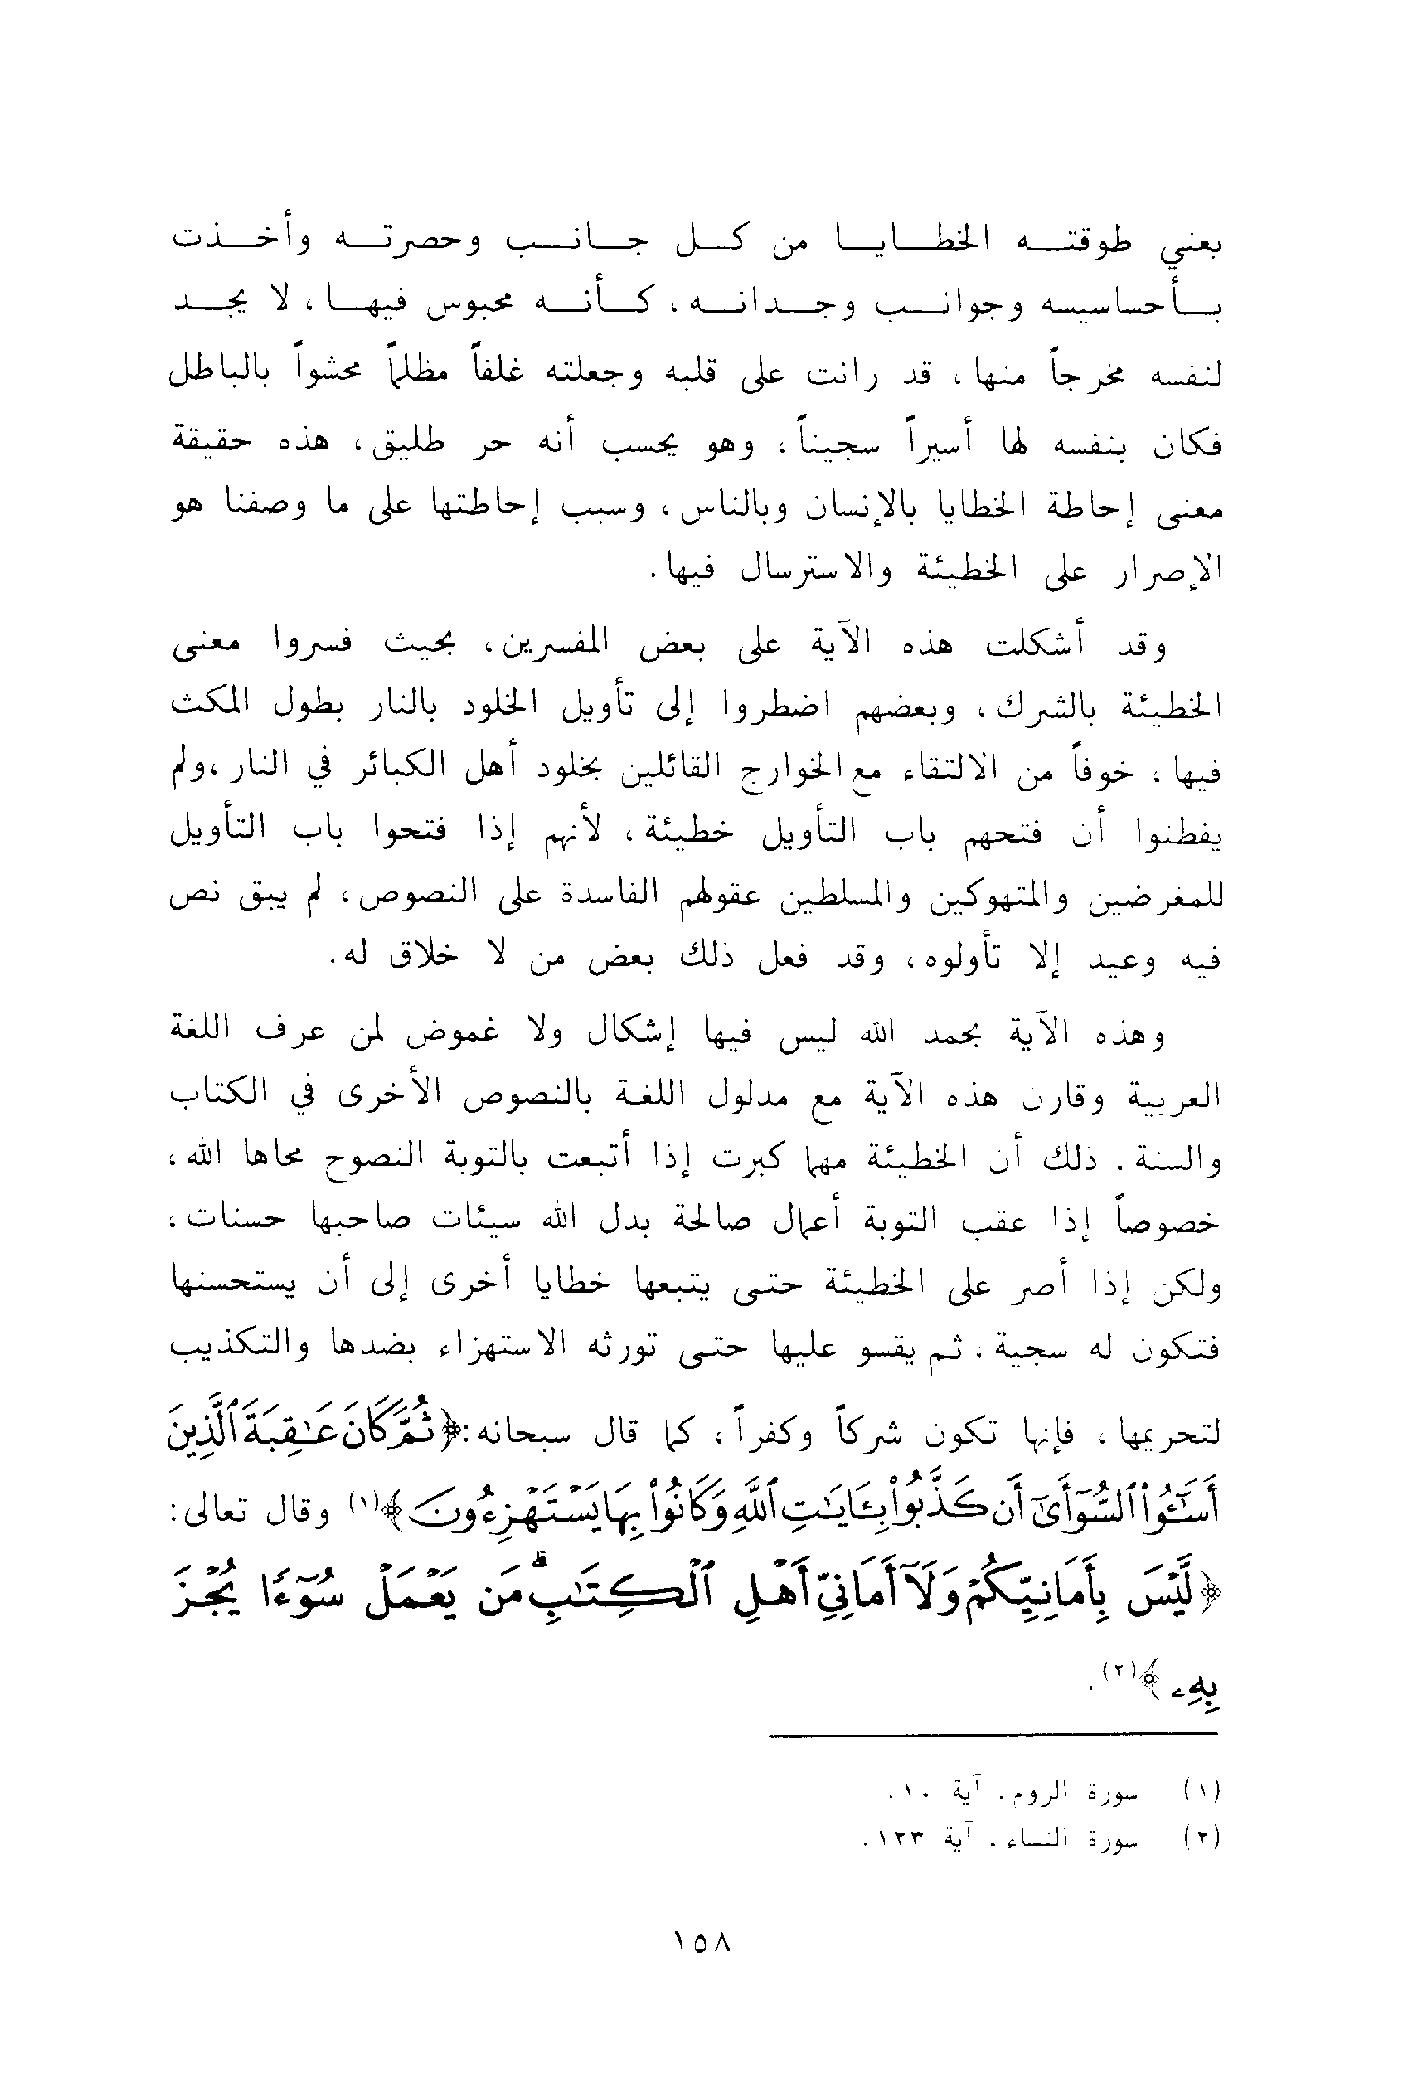 بعني طوقته الخطايا من كل جانب وحصرته وأخذت
بأحاسيسه وجوانب وجدانه، كأنه محبوس فيها، لا يجد
لنفسه مخرجاً منها، قد رانت على قلبه وجعلته غلفاً مظلماً محشواً بالباطل
فكان بنفسه لها أسيراً سجيناً، وهو يحسب أنه حر طليق، هذه حقيقة
معنى إحاطة الخطايا بالإنسان وبالناس، وسبب إحاطتها على ما وصفنا هو
الإصرار على الخطيئة والاسترسال فيها.
وقد أشكلت هذه الآية على بعض المفسرين، بحيث فسروا معنى
الخطيئة بالشرك، وبعضهم اضطروا إلى تأويل الخلود بالنار بطول المكث
فيها، خوفاً من الالتقاء مع الخوارج القائلين بخلود أهل الكبائر في النار،ولم
يفطنوا أن فتحهم باب التأويل خطيئة، لأنهم إذا فتحوا باب التأويل
للمغرضين والمتهوكين والمسلطين عقولهم الفاسدة على النصوص، لم يبق نص
فيه وعيد إلا تأولوه، وقد فعل ذلك بعض من لا خلاق له.
وهذه الآية بحمد الله ليس فيها إشكال ولا غموض لمن عرف اللغة
العربية وقارن هذه الآية مع مدلول اللغة بالنصوص الأخرى في الكتاب
والسنة. ذلك أن الخطيئة مهما كبرت إذا أتبعت بالتوبة النصوح محاها الله،
خصوصاً إذا عقب التوبة أعمال صالحة بدل الله سيئات صاحبها حسنات،
ولكن إذا أصر على الخطيئة حتى يتبعها خطايا أخرى إلى أن يستحسنها
فتكون له سجية، ثم يقسو عليها حتى تورثه الاستهزاء بضدها والتكذيب
لتحريمها، فإنها تكون شركاً وكفراً، كما قال سبحانه: ﴿ثُمَّ كَانَ عَٰقِبَةَ ٱلَّذِينَ
أَسَٰٓـُٔوا۟ ٱلسُّوٓأَىٰٓ أَن كَذَّبُوا۟ بِـَٔايَٰتِ ٱللَّهِ وَكَانُوا۟ بِهَا يَسْتَهْزِءُونَ﴾(١) وقال تعالى:
﴿لَّيْسَ بِأَمَانِيِّكُمْ وَلَآ أَمَانِيِّ أَهْلِ ٱلْكِتَٰبِ ۗ مَن يَعْمَلْ سُوٓءًا يُجْزَ
بِهِۦ﴾(٢).
(١) سورة الروم. آية ١٠.
(٢) سورة النساء. آية ١٢٣.
١٥٨